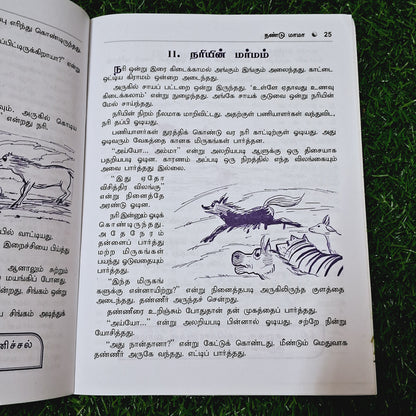 வு எரிந்து கொண்டிருந்தது.
ப்பிட்டிருக்கிறாயா?” என்று
வும், அருகில் கொடிய
றது” என்றது நரி.
ல் வாட்டியது.
இறைச்சியை பிய்த்து
ஆனாலும் சுற்றும்
மயங்கிப் போனது.
ன்றது. சிங்கம் ஒன்று
சிங்கம் அடித்துக்
னிச்சல்
நண்டு மாமா 25
11. நரியின் மர்மம்
நரி ஒன்று இரை கிடைக்காமல் அங்கும் இங்கும் அலைந்தது. காட்டை
ஒட்டிய கிராமம் ஒன்றை அடைந்தது.
அருகில் சாயப் பட்டறை ஒன்று இருந்தது. “உள்ளே ஏதாவது உணவு
கிடைக்கலாம்” என்று நுழைந்தது. அங்கே சாயக் குடுவை ஒன்று நரியின்
மேல் சாய்ந்தது.
நரியின் நிறம் நீலமாக மாறிவிட்டது. அதற்குள் பணியாளர்கள் வந்துவிட,
நரி தப்பி ஓடியது.
பணியாளர்கள் துரத்திக் கொண்டு வர நரி காட்டிற்குள் ஓடியது. அது
ஓடிவரும் வேகத்தை கானக மிருகங்கள் பார்த்தன.
“அய்யோ... அம்மா” என்று அலறியபடி ஆளுக்கு ஒரு திசையாக
பதறியபடி ஓடின. காரணம் அப்படி ஒரு நிறத்தில் எந்த விலங்கையும்
அவை பார்த்தது இல்லை.
“இது ஏதோ
விசித்திர விலங்கு”
என்று நினைத்தே
அரண்டு ஓடின.
நரி இன்னும் ஓடிக்
கொண்டிருந்தது.
அதே நேரம்
தன்னைப் பார்த்து
மற்ற மிருகங்கள்
பயந்து ஓடுவதையும்
பார்த்தது.
“இந்த மிருகங்
களுக்கு என்னாயிற்று?” என்று நினைத்தபடி அருகிலிருந்த குளத்தை
அடைந்தது. தண்ணீர் அருந்தச் சென்றது.
தண்ணீரை உறிஞ்சும் போதுதான் தன் முகத்தைப் பார்த்தது.
“அய்யோ...” என்று அலறியபடி பின்னால் ஓடியது. சற்றே நின்று
யோசித்தது.
“அது நான்தானா?” என்று கேட்டுக் கொண்டது. மீண்டும் மெதுவாக
தண்ணீர் அருகே வந்தது. எட்டிப் பார்த்தது.